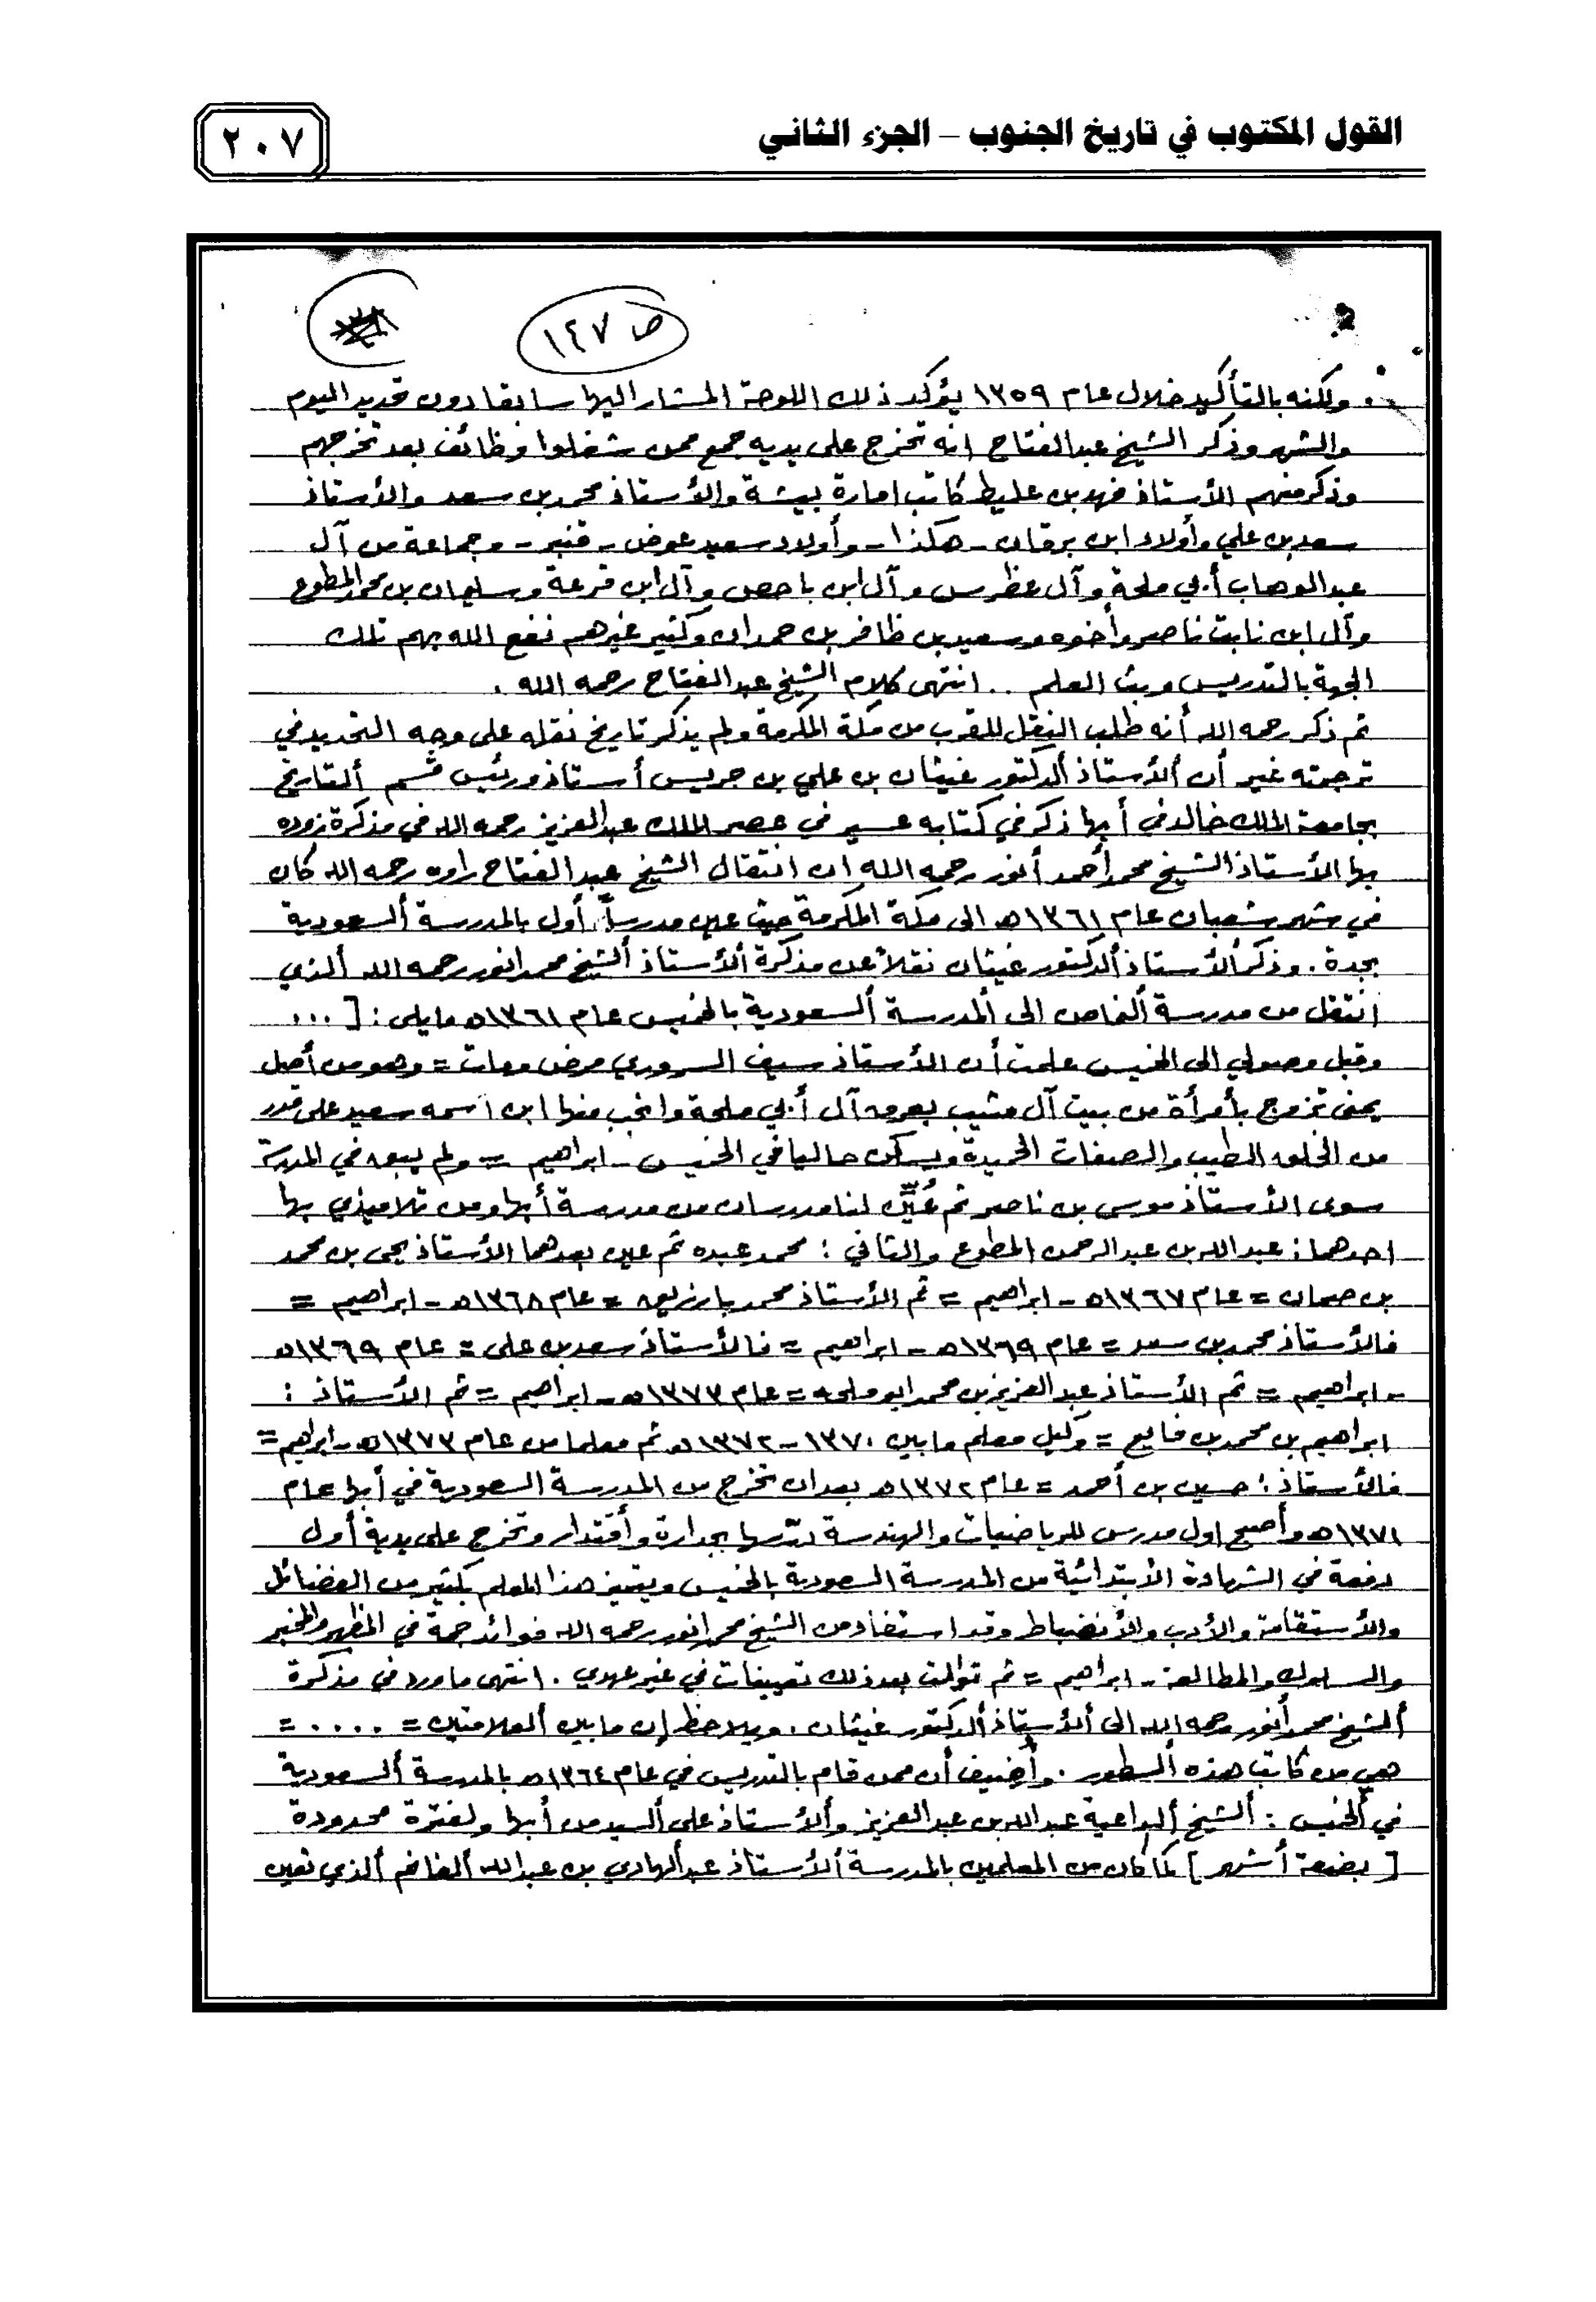 القول المكتوب في تاريخ الجنوب – الجزء الثاني
٢٠٧
ص ١٤٧
ولكنه بالتأكيد خلال عام ١٣٥٩ يؤكد ذلك اللوحة المشار اليها سابقا دون تحديد اليوم
والشهر وذكر الشيخ عبدالفتاح انه تخرج على يديه جمع ممن شغلوا وظائف بعد تخرجهم
وذكر منهم الأستاذ فهد بن عليط كاتب امارة بيشة والأستاذ محمد بن سعد والأستاذ
سعد بن علي وأولاد ابن برقان - هكذا - وأولاد سعيد عوض - قنبر - وجماعة من آل
عبدالوهاب أبي ملحة وآل عظرس وآل ابن باحص وآل ابن قرعة وسليمان بن محمد المطوع
وآل ابن نابت ناصر وأخوه وسعيد بن ظافر بن حمدان وكثير غيرهم نفع الله بهم تلك
الجهة بالتدريس وبث العلم .. انتهى كلام الشيخ عبدالفتاح رحمه الله .
ثم ذكر رحمه الله أنه طلب النقل للقرب من مكة المكرمة ولم يذكر تاريخ نقله على وجه التحديد في
ترجمته غير أن ألأستاذ ألدكتور غيثان بن علي بن جريس أستاذ ورئيس قسم ألتاريخ
بجامعة الملك خالد في أبها ذكر في كتابه عسير في عصر الملك عبدالعزيز رحمه الله في مذكرة زوده
بها الأستاذ الشيخ محمد أحمد أنور رحمه الله ان انتقال الشيخ عبدالفتاح راوه رحمه الله كان
في شهر شعبان عام ١٣٦١هـ الى مكة المكرمة حيث عين مدرساً أول بالمدرسة ألسعودية
بجدة . وذكر ألأستاذ ألدكتور غيثان نقلاً عن مذكرة ألأستاذ ألشيخ محمد انور رحمه الله ألذي
انتقل من مدرسة ألنماص الى ألمدرسة ألسعودية بالخميس عام ١٣٦١هـ مايلي : [ ...
وقبل وصولي الى الخميس علمت أن الأستاذ سيف السروري مرض ومات = وهو من أصل
يمني تزوج بأمرأة من بيت آل مشيب بعرق آل أبي ملحة وانجب منها ابن اسمه سعيد على قدر
من الخلق الطيب والصفات الحميدة ويسكن حاليا في الخميس - ابراهيم = ولم يبق في المدرسة
سوى الأستاذ موسى بن ناصر ثم عُيِّن لنا مدرسان من مدرسة أبها ومن تلاميذي بها
احدهما : عبدالله بن عبدالرحمن المطوع والثاني : محمد عبده ثم عين بعدهما الأستاذ يحيى بن محمد
بن صمان = عام ١٣٦٧هـ - ابراهيم = ثم الأستاذ محمد بارزيق = عام ١٣٦٨هـ - ابراهيم =
فالأستاذ محمد بن سعد = عام ١٣٦٩هـ - ابراهيم = فالأستاذ سعد بن علي = عام ١٣٦٩هـ
- ابراهيم = ثم الأستاذ عبدالعزيز بن محمد ابو ملحه = عام ١٣٧٣هـ - ابراهيم = ثم الأستاذ :
ابراهيم بن محمد بن فايع = وكيل معلم مابين ١٣٧٠ - ١٣٧٢هـ ثم معلما من عام ١٣٧٣هـ - ابراهيم =
فالأستاذ : حسين بن أحمد = عام ١٣٧٢هـ بعد ان تخرج من المدرسة السعودية في أبها عام
١٣٧١هـ وأصبح اول مدرس للرياضيات والهندسة درّسها بجدارة وأقتدار وتخرج على يدية أول
دفعة في الشهادة الأبتدائية من المدرسة السعودية بالخميس ويتميز هذا المعلم بكثير من الفضائل
والأستقامة والأدب والأنضباط وقد استفاد من الشيخ محمد انور رحمه الله فوائد جمة في المظهر والمخبر
والسلوك والمطالعة - ابراهيم = ثم توالت بعد ذلك تعيينات في غير عهدي . انتهى ما ورد في مذكرة
ألشيخ محمد أنور رحمه الله الى ألأستاذ ألدكتور غيثان . ويلاحظ إن مابين ألعلامتين = .... =
هي من كاتب هذه ألسطور . وأضيف أن ممن قام بالتدريس في عام ١٣٦٤هـ بالمدرسة ألسعودية
في ألخميس : ألشيخ ألداعية عبدالله بن عبدالعزيز وألأستاذ علي ألسيد من أبها ولفترة محدودة
[ بضعة أشهر ] كما كان من المعلمين بالمدرسة ألأستاذ عبدألهادي بن عبدالله ألغانم ألذي تعين